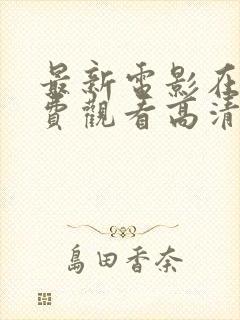 最新电影在
費觀看高清
島田香奈